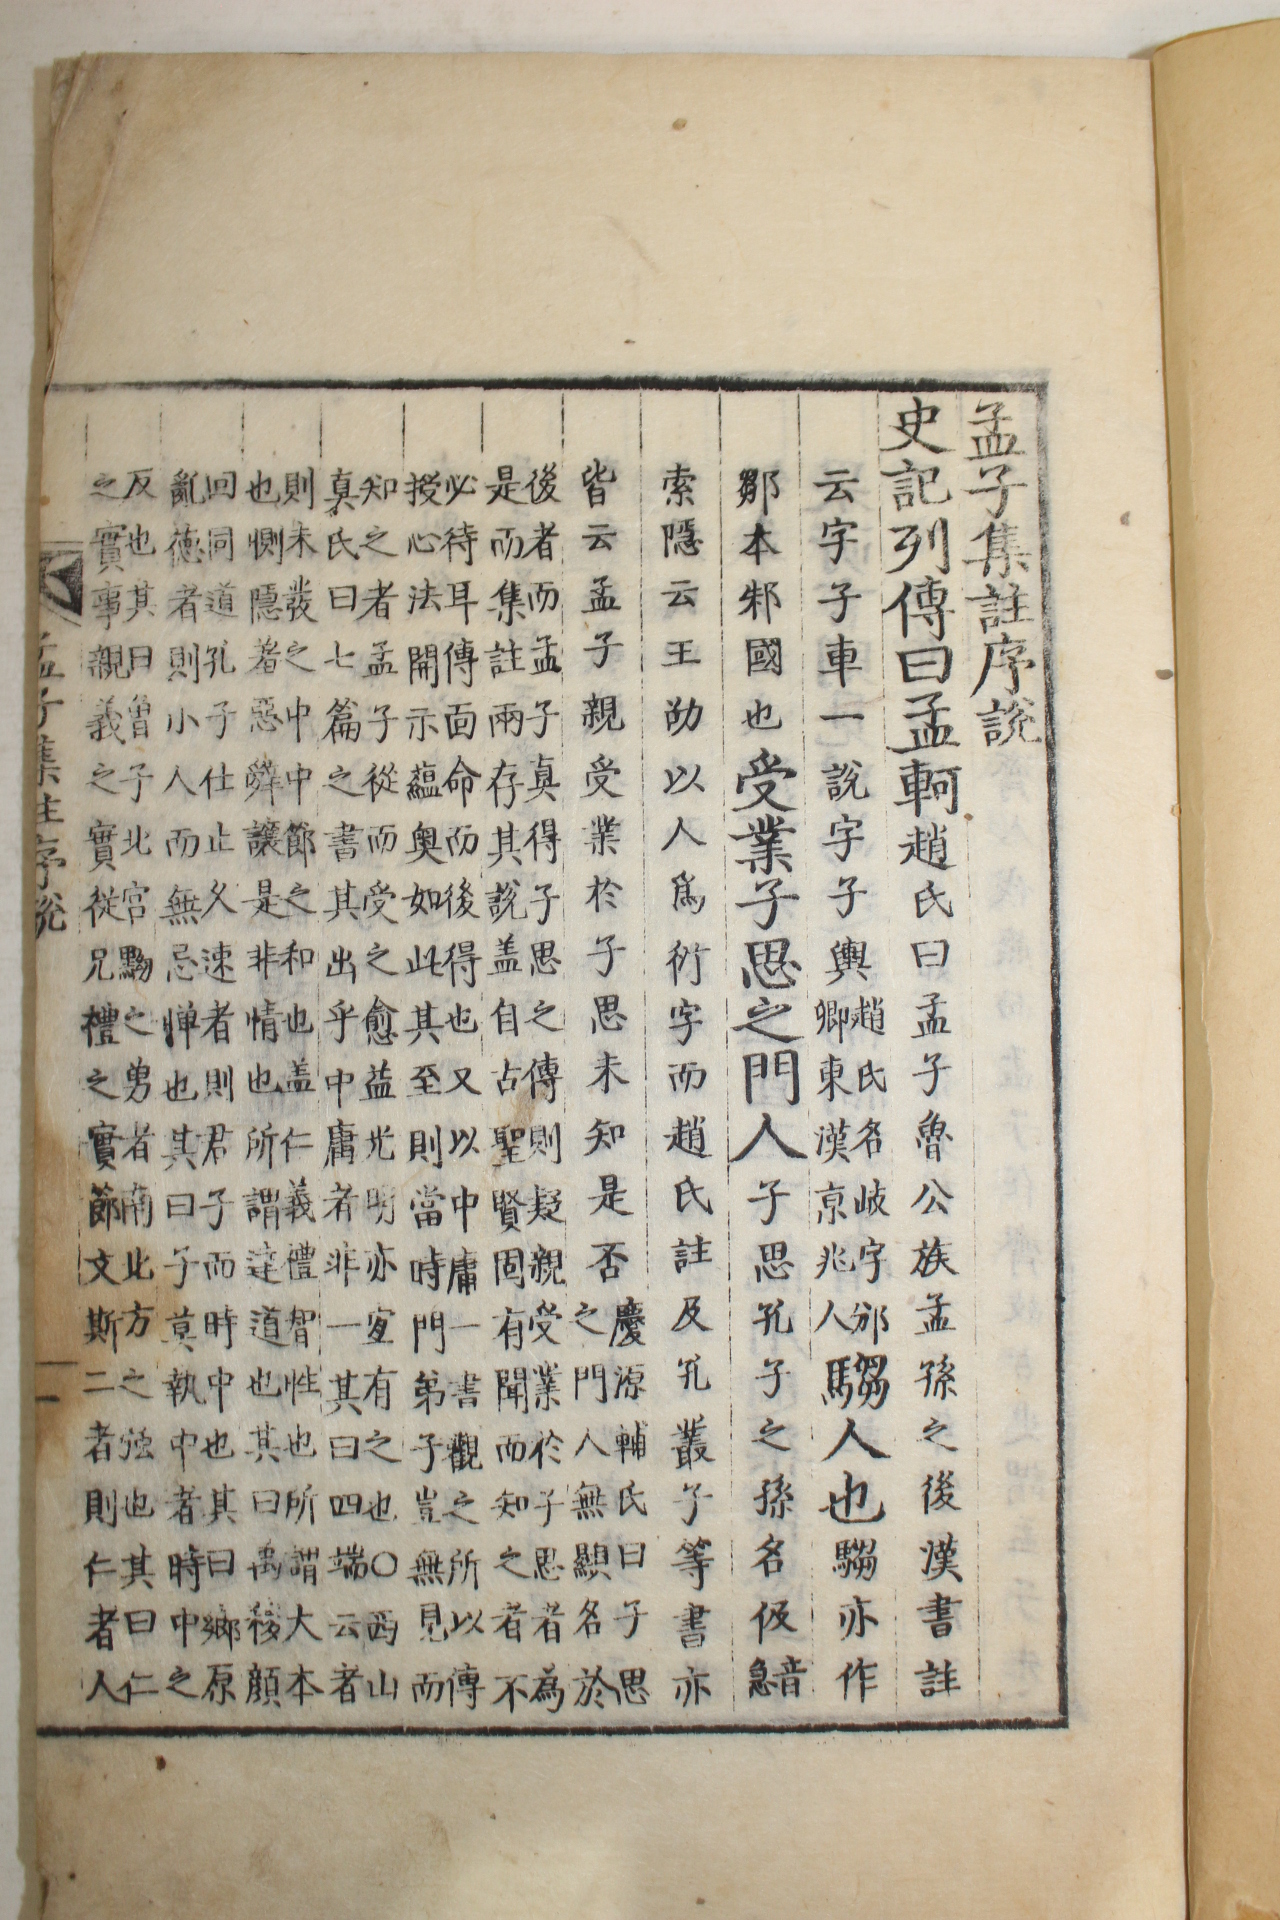 孟子集註序說
史記列傳曰孟軻趙氏曰孟子魯公族孟孫之後漢書註
云字子車一說字子輿
趙氏名岐字邠
卿東漢京兆人
騶人也騶亦作
鄒本邾國也受業子思之門人子思孔子之孫名伋
音
急
索隱云王劭以人爲衍字而趙氏註及孔叢子等書亦
皆云孟子親受業於子思未知是否
慶源輔氏曰子思
之門人無顯名於
後者而孟子真得子思之傳則疑親受業於子思者為
是而集註兩存其說盖自古聖賢固有聞而知之者不
必待耳傳面命而後得也又以中庸一書觀之所以傳
授心法開示蘊奥如此其至則當時門弟子豈無見而
知之者孟子從而受之愈益光明亦宜有之也○西山
真氏曰七篇之書其出乎中庸者非一其曰四端云者
則未發之中中節之和也盖仁義禮智性也所謂大本
也惻隱羞惡辭讓是非情也所謂達道也其曰禹稷顔
回同道孔子仕止久速者則君子而時中也其曰鄉原
亂德者則小人而無忌憚也其曰子莫執中者時中之
反也其曰曾子北宮黝之勇者南北方之强也其曰仁
之實事親義之實從兄禮之實節文斯二者則仁者人
孟子集註序說
一